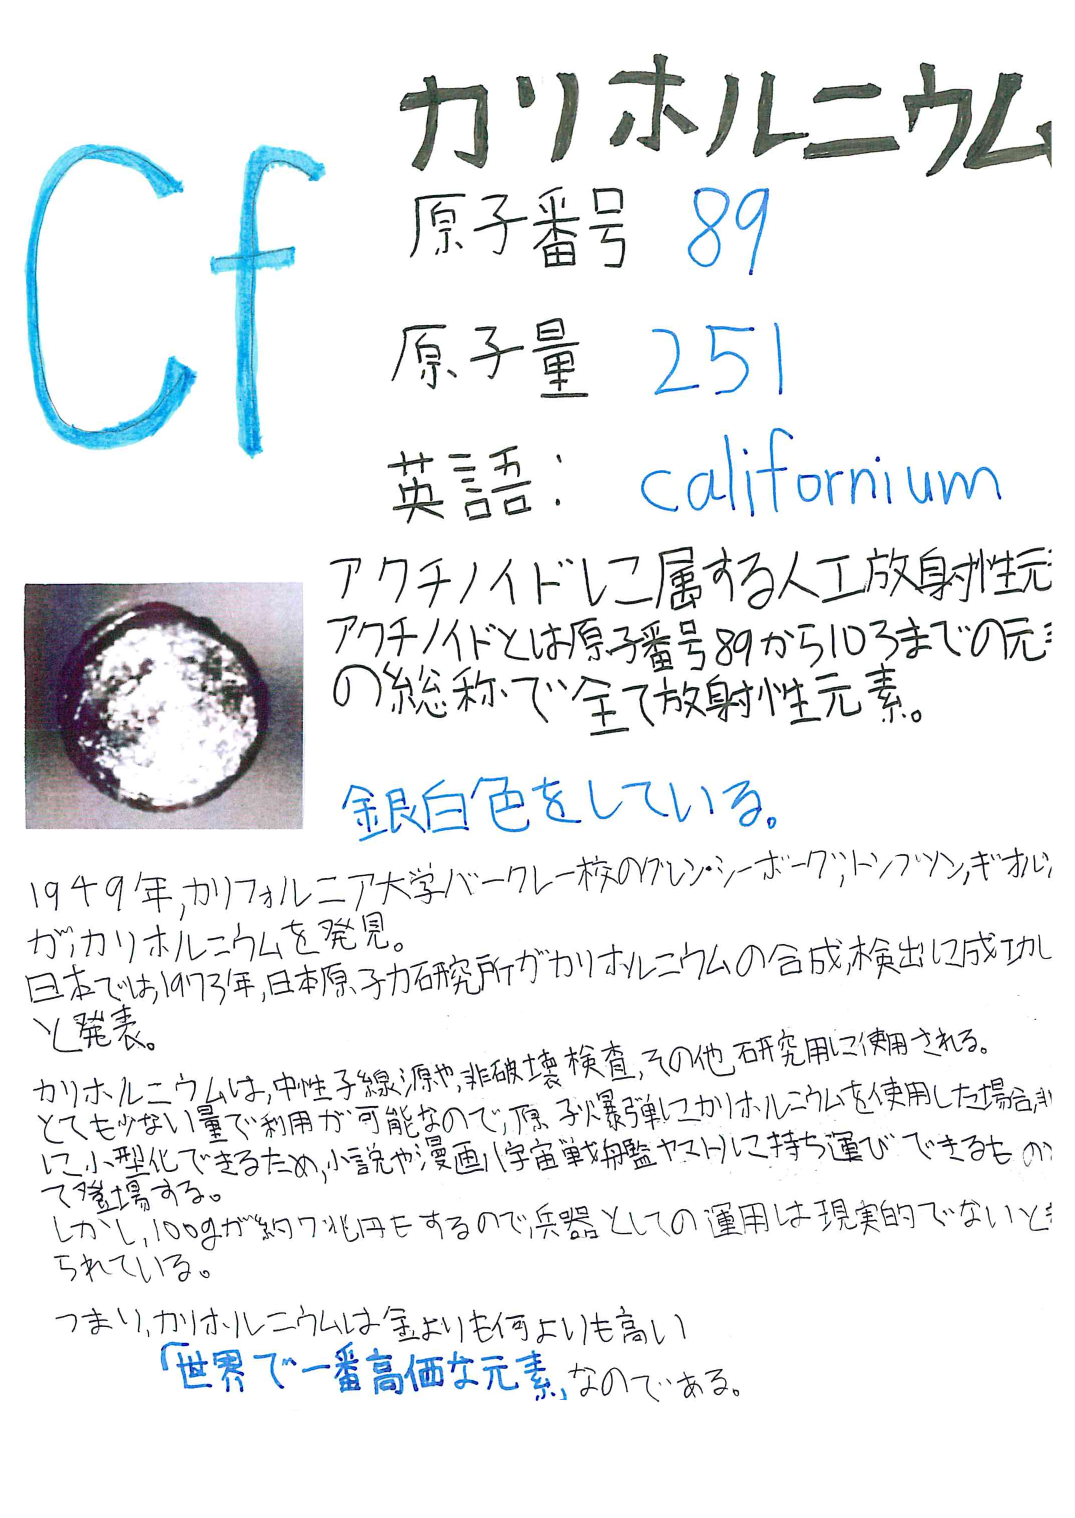 Cf
カリホルニウム
原子番号 89
原子量 251
英語: californium
アクチノイドに属する人工放射性元
アクチノイドとは原子番号89から103までの元
の総称で全て放射性元素。
銀白色をしている。
1949年,カリフォルニア大学バークレー校のグレン・シーボーグ,トンプソン,ギオル
が,カリホルニウムを発見。
日本では,1973年,日本原子力研究所がカリホルニウムの合成,検出に成功し
と発表。
カリホルニウムは,中性子線源や,非破壊検査,その他研究用に使用される。
とても少ない量で利用が可能なので,原子爆弾にカリホルニウムを使用した場合,
に小型化できるため,小説や漫画「宇宙戦艦ヤマト」に持ち運びできるもの
て登場する。
しかし,100gが約7兆円もするので,兵器としての運用は現実的でないと
られている。
つまり,カリホルニウムは金よりも何よりも高い
「世界で一番高価な元素」なのである。